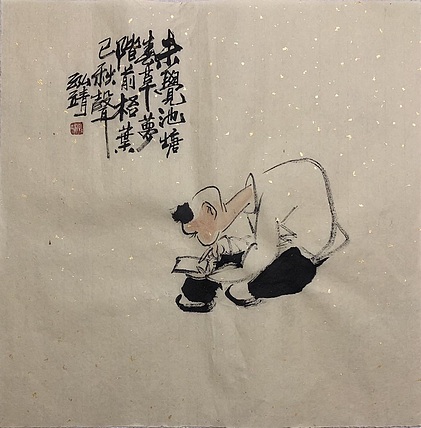 未覺池塘
春草夢
階前梧葉
已秋聲
泓靖